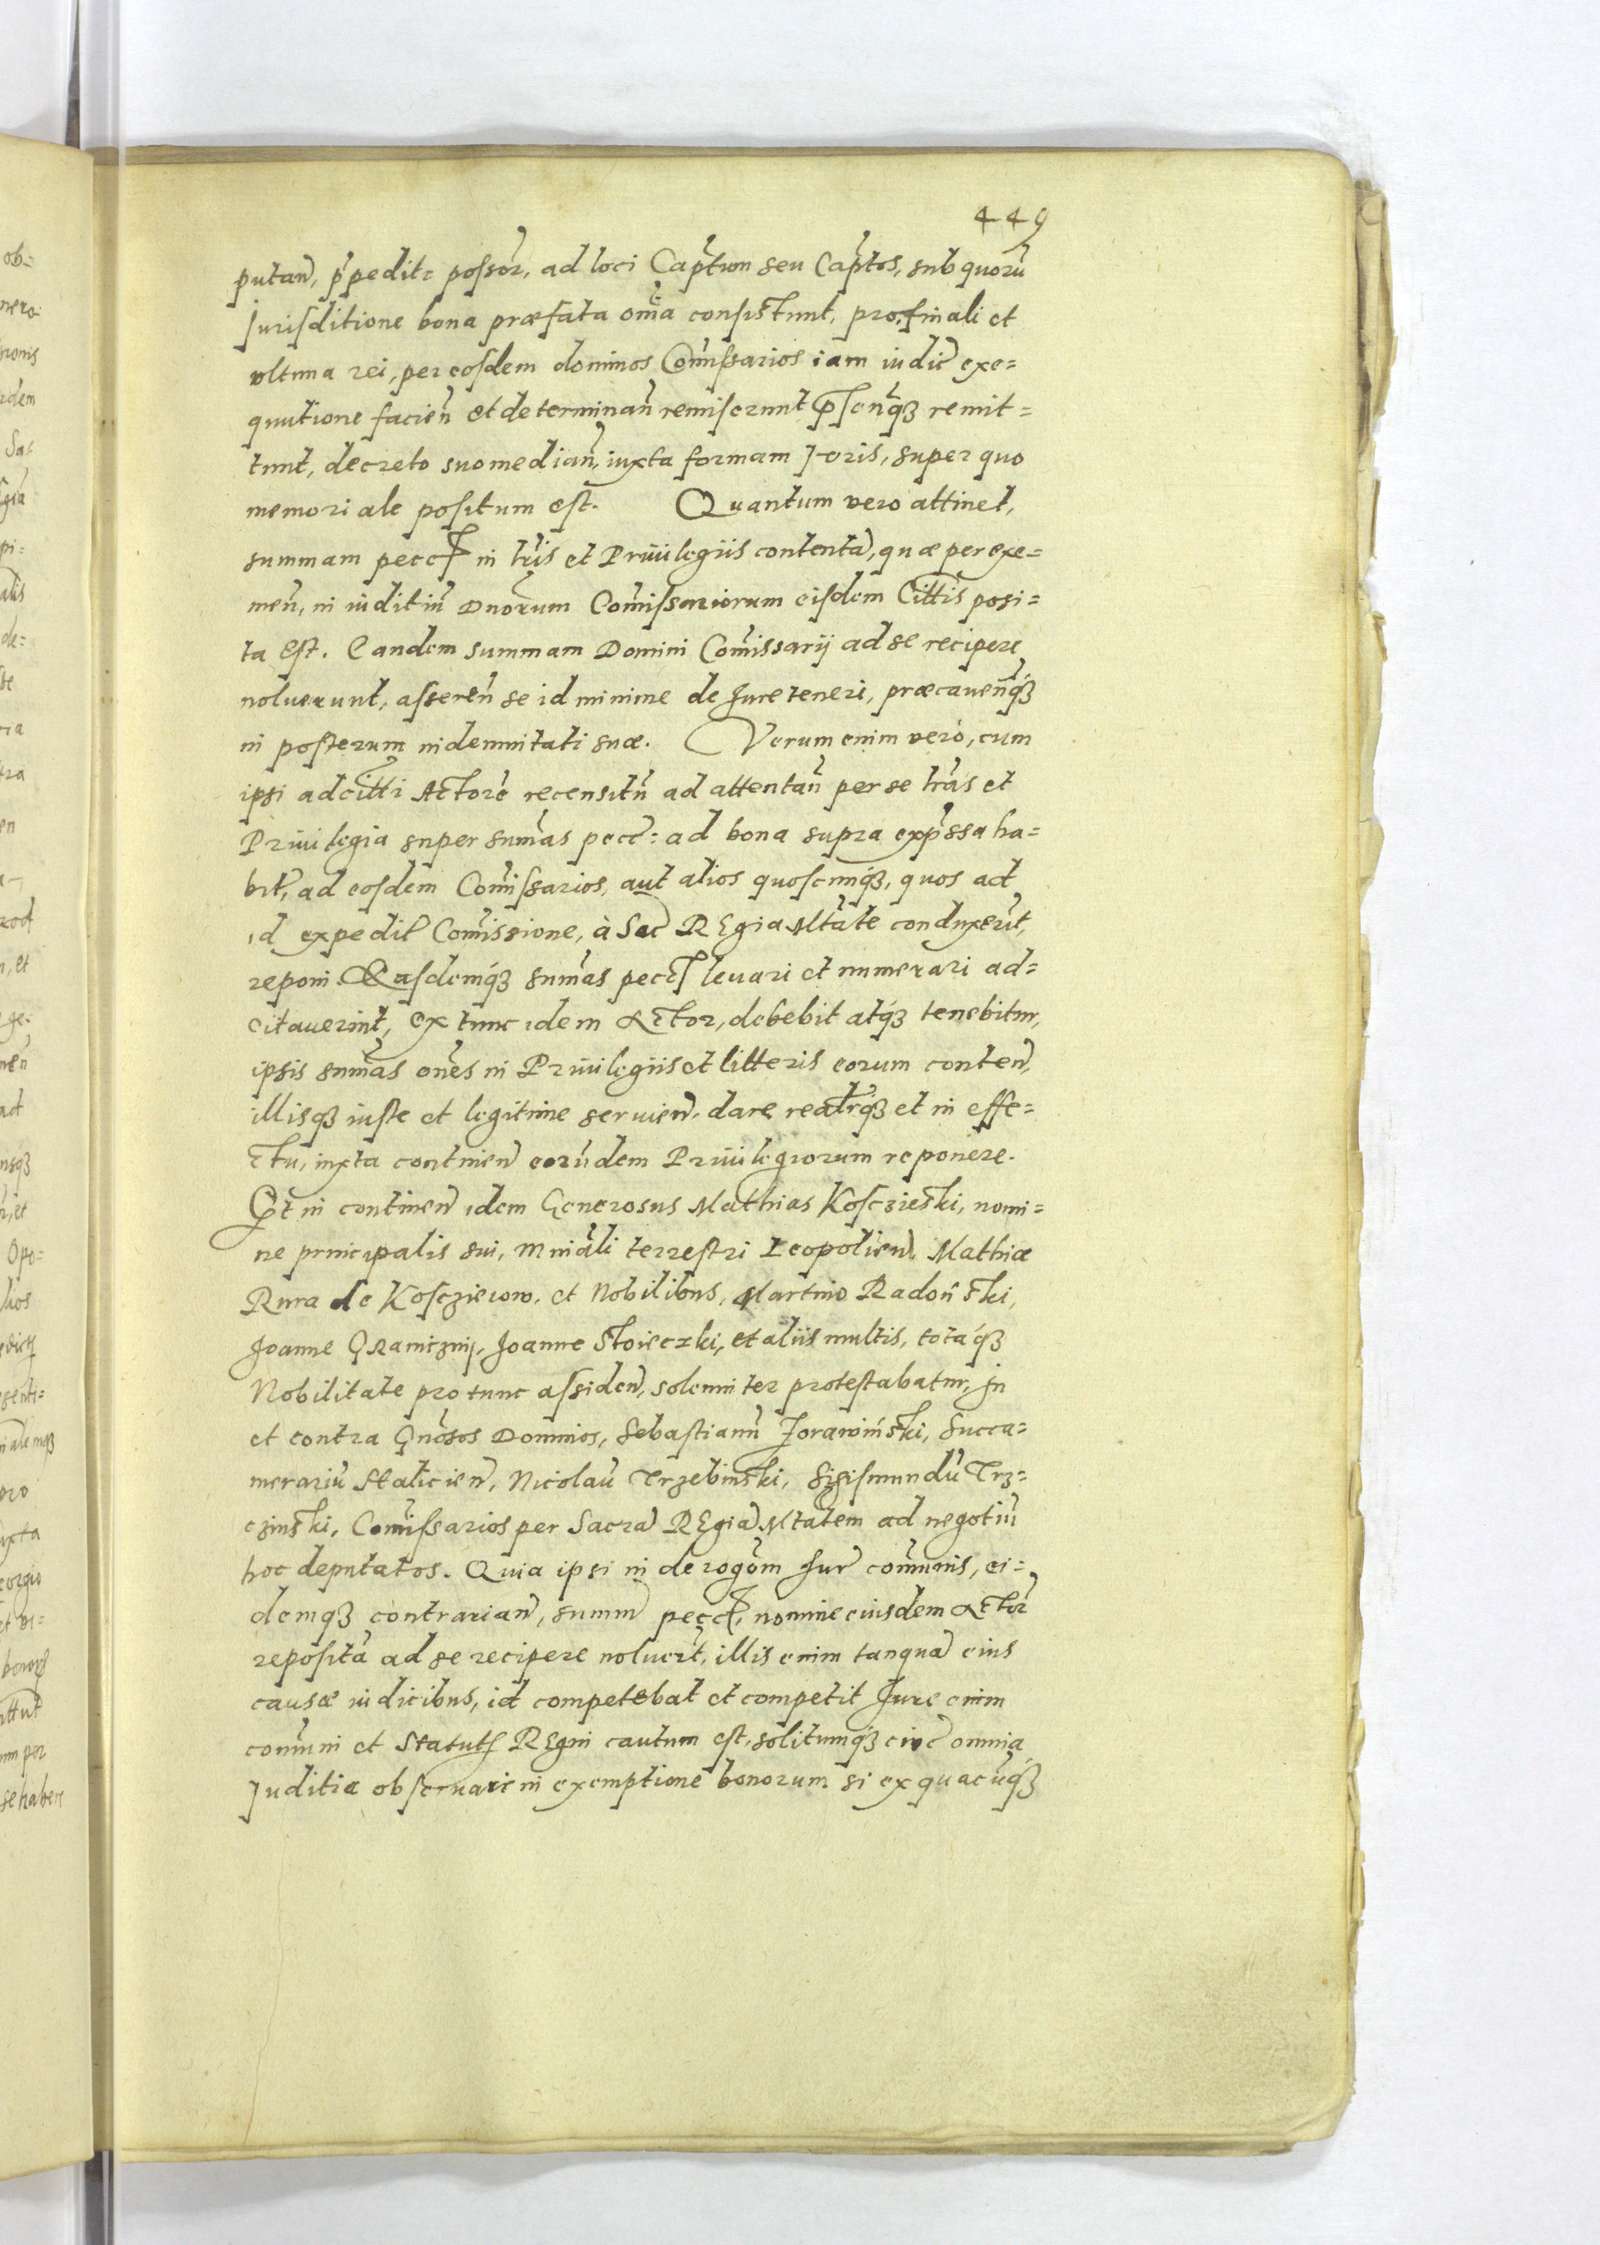 449
putan̄, p̄pedit: possor̄, ad loci Cap̄tum seu Cap̄tos, sub quorū
Jurisditione bona præfata om̄ia consistunt, pro finali et
ultima rei, per eosdem dominos Com̄issarios iam iudic̄ exe=
quutione facien̄ et determinan̄ remiserunt remit=
tunt, decreto suo median̄, iuxta formam Juris, super quo
memoriale positum est. Quantum vero attinet,
summam in tr̄is et Priuilegiis contentā, quæ per exe=
men̄, in iuditiū Dnorum Com̄issariorum eisdem Citt̄is posi=
ta est. Eandem summam Domini Com̄issarij ad se recipere
noluerunt, asseren̄ se id minime de Jure teneri, præcauen̄q3
in posterum indemnitati suæ. Verum enim verò, cum
ipsi adcitt̄i Actore recensitū ad attentan̄ per se tr̄as et
Priuilegia super sum̄as pecc̄: ad bona supra exp̄ssa ha=
bit̄, ad eosdem Com̄issarios, aut alios quoscunq3, quos ad
id expedit Com̄issione, à Sac̄ REgia Mtāte conduxerīt,
reponi. Easdemq3 sum̄as leuari et numerari ad=
citauerint, ex tunc idem Actor, debebit atq3 tenebitur,
ipsis sum̄as om̄es in Priuilegiis et litteris eorum conten̄,
illisq3 iuste et legitime seruien̄, dare realr̄q3 et in effe=
ctu, iuxta continen̄ eorūdem Priuilegiorum reponere.
Et in continen̄ idem Generosus Mathias Kosczieski, nomi=
ne principalis sui, Mniāli terrestri Leopolien̄, Mathiæ
Rura de Koscziewow, et Nobilibus, Martino Radonski,
Joanne Graniczny, Joanne Stoieczki, et aliis multis, totaq3
Nobilitate pro tunc assiden̄, solemniter protestabatur, Jn
et contra Gn̄osos Dominos, Sebastianū Zorawiński, Succa=
merariū Halicien̄, Nicolaū Trzebinski, Sigismundū Trz=
czinski, Com̄issarios per Sacrā REgiā Mtatem ad negotiū
hoc deputatos. Quia ipsi in derogōm Jur̄ com̄unis, ei=
demq3 contrarian̄, summ̄ nomine eiusdem Actor̄
repositā ad se recipere noluerīt, illis enim tanquā eius
causæ iudicibus, id competebat et competit Jure enim
com̄uni et Statutis REgni cautum est, solitumq3 omnia
Juditia obseruare in exemptione bonorum si ex quacūq3